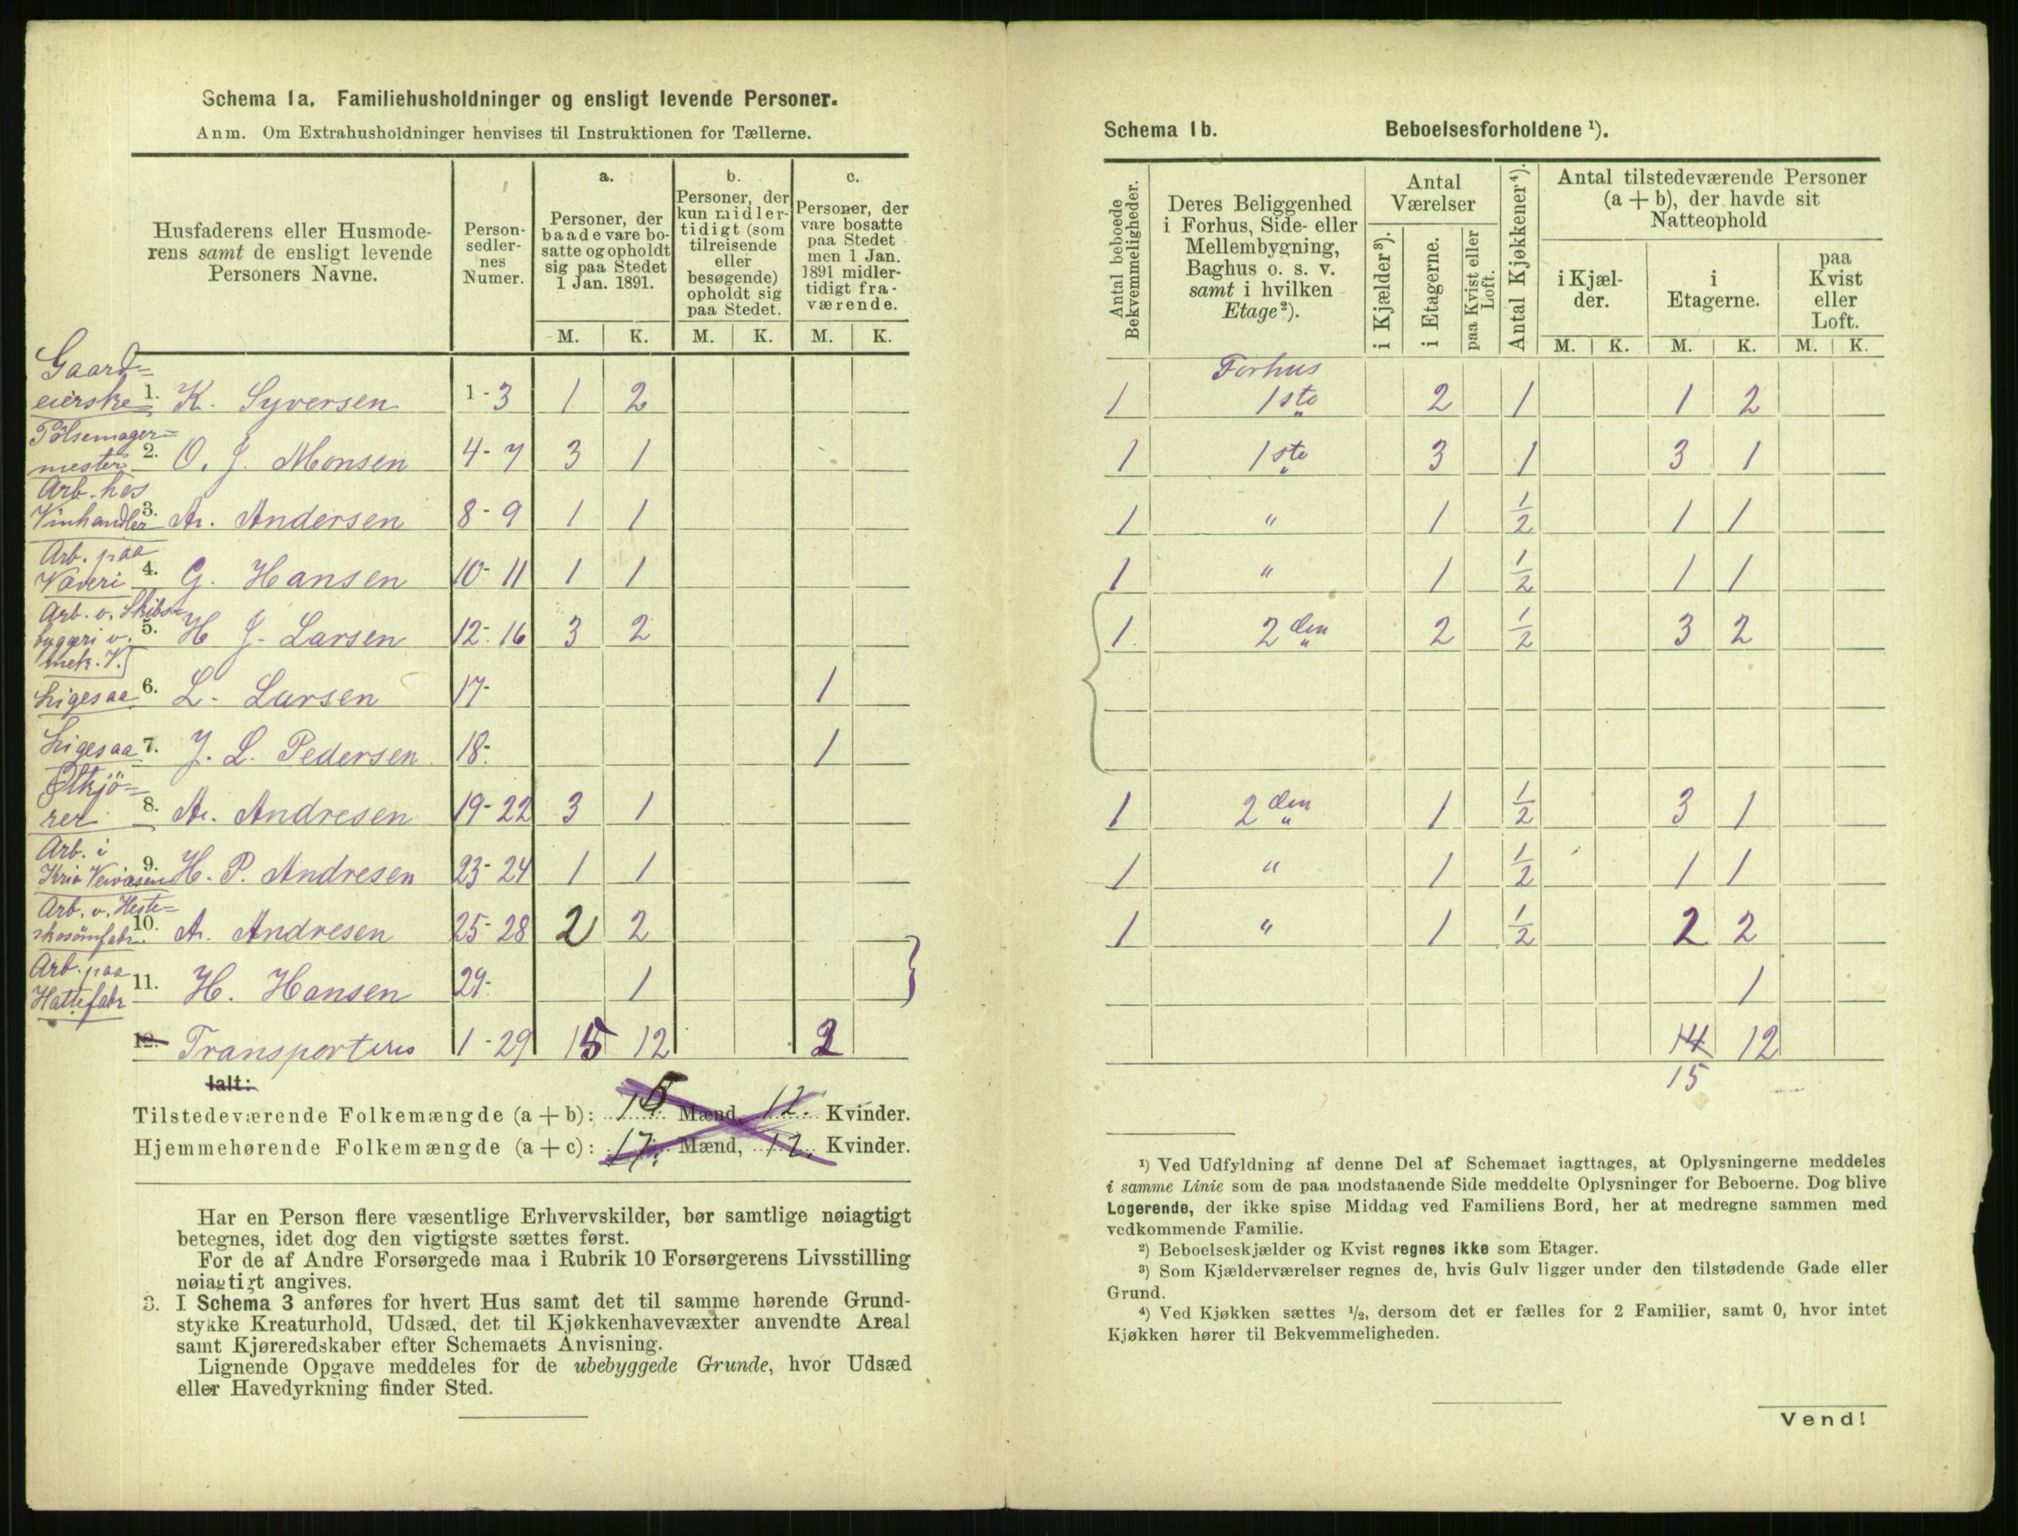 Schema 1a. Familiehusholdninger og ensligt levende Personer.
Anm. Om Extrahusholdninger henvises til Instruktionen for Tællerne.
Husfaderens eller Husmoderens samt de ensligt levende Personers Navne.
Personsedlernes Numer.
a.
Personer, der baade vare bosatte og opholdt sig paa Stedet 1 Jan. 1891.
b.
Personer, der kun midlertidigt (som tilreisende eller besøgende) opholdt sig paa Stedet.
c.
Personer, der vare bosatte paa Stedet men 1 Jan. 1891 midlertidigt fraværende.
M. K. M. K. M. K.
Gaardeierske 1. K. Syversen 1-3 1 2
Pölsemagermester 2. O. J. Monsen 4-7 3 1
Arb. hos Vinhandler 3. A. Andersen 8-9 1 1
Arb. paa Væveri 4. G. Hansen 10-11 1 1
Arb. v. Skibsbyggeri v. mek. V. 5. H. J. Larsen 12-16 3 2
Ligesaa 6. L. Larsen 17- 1
Ligesaa 7. J. L. Pedersen 18- 1
Ölkjörer 8. A. Andresen 19-22 3 1
Arb. i 9. H. P. Andresen 23-24 1 1
Arb. v. Hesteskosömfabr. 10. A. Andresen 25-28 2 2
Arb. paa Hattefabr 11. H. Hansen 29- 1
12. Transporteres 1-29 15 12 2
Ialt:
Tilstedeværende Folkemængde (a + b): 15 Mænd, 12. Kvinder.
Hjemmehørende Folkemængde (a + c): 17. Mænd, 12. Kvinder.
Har en Person flere væsentlige Erhvervskilder, bør samtlige nøiagtigt
betegnes, idet dog den vigtigste sættes først.
For de af Andre Forsørgede maa i Rubrik 10 Forsørgerens Livsstilling
nøiagtigt angives.
3. I Schema 3 anføres for hvert Hus samt det til samme hørende Grund-
stykke Kreaturhold, Udsæd, det til Kjøkkenhavevæxter anvendte Areal
samt Kjøreredskaber efter Schemaets Anvisning.
Lignende Opgave meddeles for de ubebyggede Grunde, hvor Udsæd
eller Havedyrkning finder Sted.
Schema 1b. Beboelsesforholdene ¹).
Antal beboede Bekvemmeligheder.
Deres Beliggenhed i Forhus, Side- eller Mellembygning, Baghus o. s. v. samt i hvilken Etage²).
Antal Værelser
i Kjælder³).
i Etagerne.
paa Kvist eller Loft.
Antal Kjøkkener⁴).
Antal tilstedeværende Personer (a + b), der havde sit Natteophold
i Kjælder.
i Etagerne.
paa Kvist eller Loft.
M. K. M. K. M. K.
Forhus
1 1ste 2 1 1 2
1 1ste 3 1 3 1
1 " 1 ½ 1 1
1 " 1 ½ 1 1
1. 2den 2 ½ 3 2
1 2den 1 ½ 3 1
1 " 1 ½ 1 1
1 " 1 ½ 2 2
1
14 12
15
¹) Ved Udfyldning af denne Del af Schemaet iagttages, at Oplysningerne meddeles
i samme Linie som de paa modstaaende Side meddelte Oplysninger for Beboerne. Dog blive
Logerende, der ikke spise Middag ved Familiens Bord, her at medregne sammen med
vedkommende Familie.
²) Beboelseskjælder og Kvist regnes ikke som Etager.
³) Som Kjælderværelser regnes de, hvis Gulv ligger under den tilstødende Gade eller
Grund.
⁴) Ved Kjøkken sættes ½, dersom det er fælles for 2 Familier, samt 0, hvor intet
Kjøkken hører til Bekvemmeligheden.
Vend!